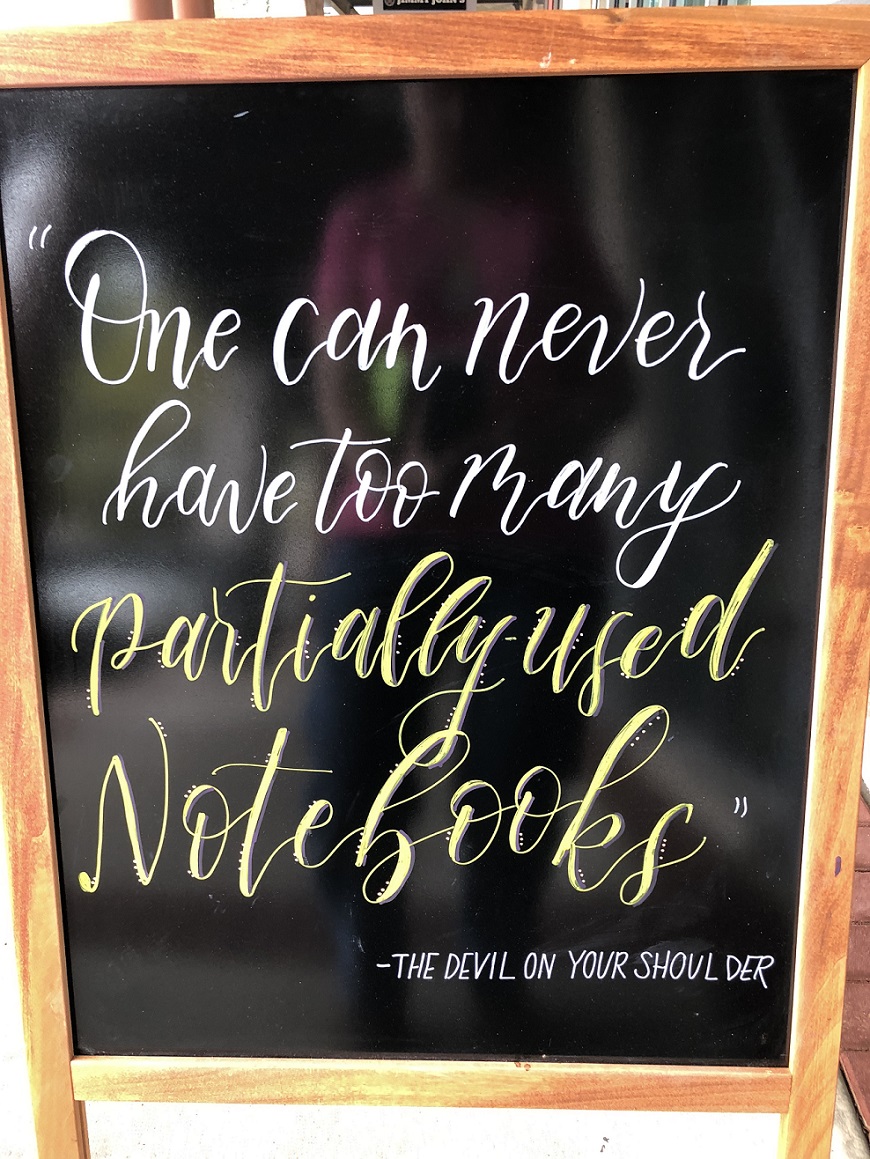 JIMMY JOHN'S
"One can never
have too many
partially-used
Notebooks"
-THE DEVIL ON YOUR SHOULDER